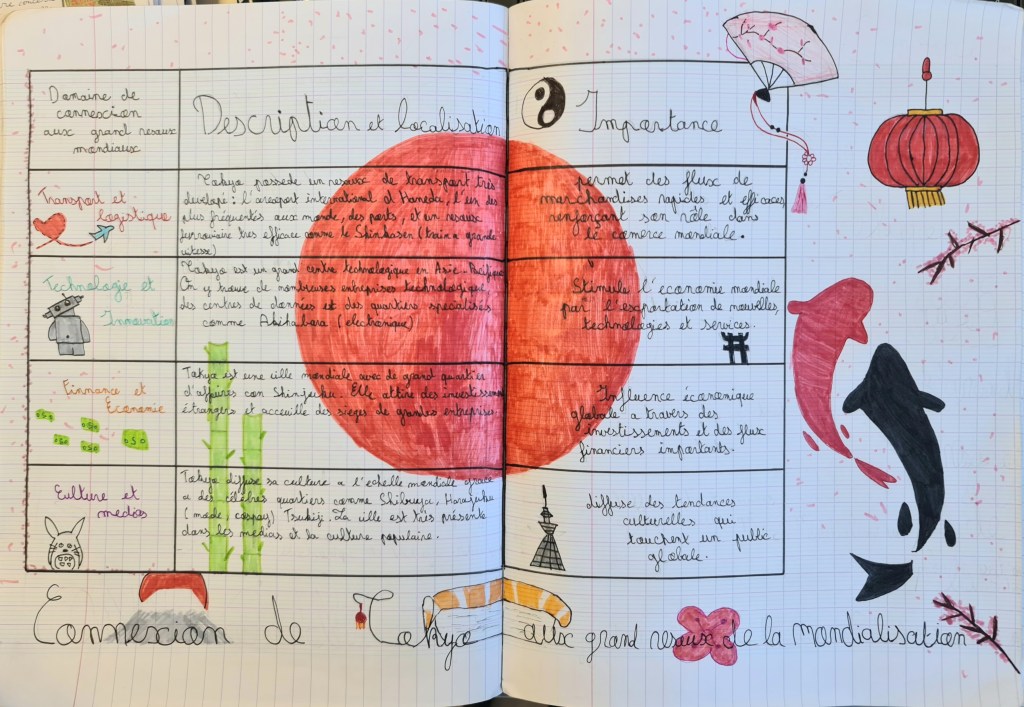 Domaine de
connexion
aux grand resaux
mondiaux
Description et localisation
Importance
Transport et
logistique
Tokyo possède un resaux de transport très
develope : l'areoport international d'Haneda, l'un des
plus fréquentés aux monde, des ports, et un resaux
ferroviaire très efficace comme le Shinkasen (train a grande
vitesse)
permet des flux de
marchandises rapides et efficaces
renforçant son rôle dans
le comerce mondiale.
Technologie et
Innovation
Tokyo est un grand centre technologique en Asie-Pacifique
On y trouve de nombreuses entreprises technologique,
des centres de données et des quartiers specialisés
comme Akihabara (electronique)
Stimule l'économie mondiale
par l'exportation de nouvelles
technologies et services.
Finnance et
Economie
Tokyo est une ville mondiale avec de grand quartiers
d'affaires con Shinjuku. Elle attire des investisseurs
étrangers et acceuille des sieges de grandes entreprises.
Influence économique
globale a travers des
investissements et des flux
financiers importants.
Culture et
medias
Tokyo diffuse sa culture a l'echelle mondiale grace
a des célèbres quartiers comme Shibuya, Harajuku
(mode, cospay) Tsukiji. La ville est très présente
dans les medias et la culture populaire.
diffuse des tendances
culturelles qui
touchent un public
globale.
Connexion de Tokyo aux grand resaux de la mondialisation